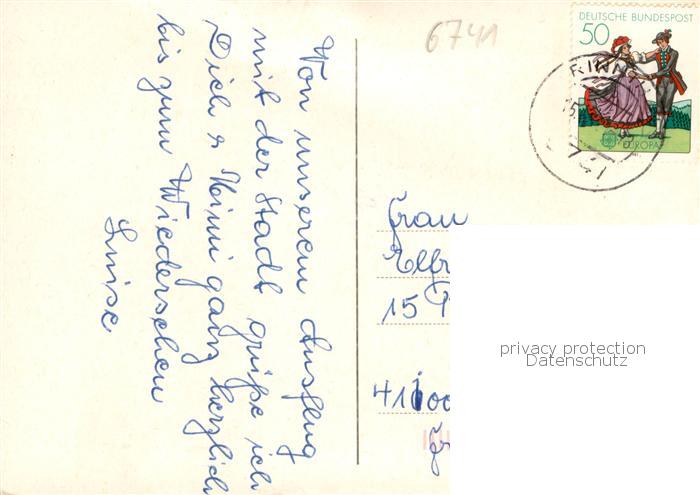 Von unserem Ausflug
mit der Stadt grüße ich
Dich & Heini ganz herzlich
bis zum Wiedersehen
Luise
6741
DEUTSCHE BUNDESPOST
50
EUROPA
RINN
741
Frau
Elfr
15
privacy protection
Datenschutz